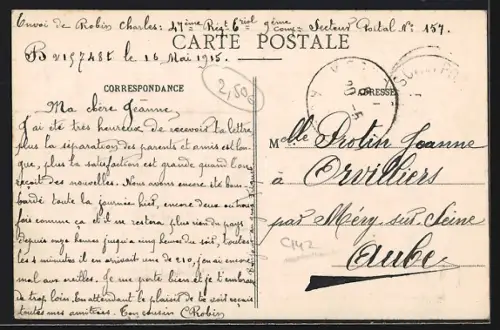 Envoi de Robin Charles: 47ème Régt 6 riol 9ème Comp. Secteur Postal No 157.
CARTE POSTALE
le 16 Mai 1915.
CORRESPONDANCE
ADRESSE
2,50€
Ma chère Jeanne,
J'ai été très heureux de recevoir ta lettre
plus la séparation des parents et amis est lon
gue, plus la satisfaction est grande quand l'on
reçoit des nouvelles. Nous avons encore été bom
bardé toute la journée hier, encore deux ou trois
fois comme ça et il ne restera plus rien du pays
depuis onze heures jusqu'à cinq heures du soir, toutes
les 4 minutes il en arrivait une de 210, j'en ai encore
mal aux oreilles. Je me porte bien et je t'embrasse
de trop loin. En attendant le plaisir de te voir reçois
toutes mes amitiées. Ton cousin CRobin
Melle Protin Jeanne
à Orvilliers
par Méry sur Seine
Aube
C142